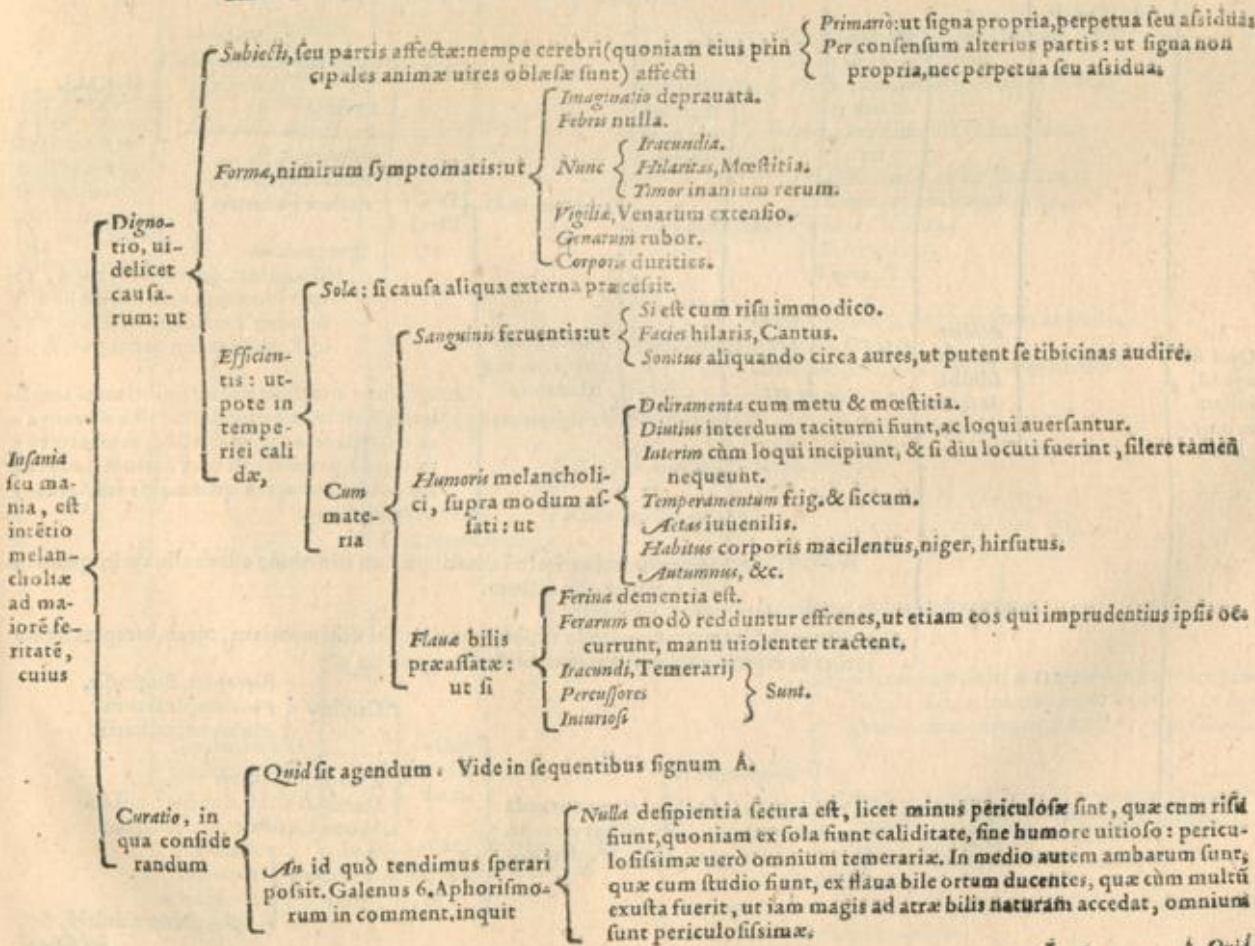 Insania
ſeu ma-
nia, eſt
intẽtio
melan-
choliæ
ad ma-
iorẽ fe-
ritatẽ,
cuius
Digno-
tio, ui-
delicet
cauſa-
rum: ut
Subiecti, ſeu partis affectæ: nempe cerebri (quoniam eius prin
cipales animæ uires oblæſæ ſunt) affecti
Primariò: ut ſigna propria, perpetua ſeu aſsidua
Per conſenſum alterius partis: ut ſigna non
propria, nec perpetua ſeu aſsidua.
Formæ, nimirum ſymptomatis: ut
Imaginatio deprauata.
Febris nulla.
Nunc
Iracundia.
Hilaritas, Mœſtitia.
Timor inanium rerum.
Vigiliæ, Venarum extenſio.
Genarum rubor.
Corporis durities.
Efficien-
tis: ut-
pote in
tempe-
riei cali
dæ,
Solæ: ſi cauſa aliqua externa præceſsit.
Cum
mate-
ria
Sanguinis feruentis: ut
Si eſt cum riſu immodico.
Facies hilaris, Cantus.
Sonitus aliquando circa aures, ut putent ſe tibicinas audire.
Humoris melancholi-
ci, ſupra modum aſ-
ſati: ut
Deliramenta cum metu & mœſtitia.
Diutius interdum taciturni fiunt, ac loqui auerſantur.
Interim cùm loqui incipiunt, & ſi diu locuti fuerint, ſilere tamen
nequeunt.
Temperamentum frig. & ſiccum.
Aetas iuuenilis.
Habitus corporis macilentus, niger, hirſutus.
Autumnus, &c.
Flauæ bilis
præaſſatæ:
ut ſi
Ferina dementia eſt.
Ferarum modò redduntur effrenes, ut etiam eos qui imprudentius ipſis oc-
currunt, manu uiolenter tractent.
Iracundi, Temerarij
Percuſſores
Iniurioſi
Sunt.
Curatio, in
qua conſide
randum
Quid ſit agendum. Vide in ſequentibus ſignum A.
An id quò tendimus ſperari
poſsit. Galenus 6. Aphoriſmo-
rum in comment. inquit
Nulla deſipientia ſecura eſt, licet minus periculoſæ ſint, quæ cum riſu
fiunt, quoniam ex ſola fiunt caliditate, ſine humore uitioſo: pericu-
loſiſsimæ uerò omnium temerariæ. In medio autem ambarum ſunt,
quæ cum ſtudio fiunt, ex flaua bile ortum ducentes, quæ cùm multũ
exuſta fuerit, ut iam magis ad atræ bilis naturam accedat, omnium
ſunt periculoſiſsimæ.
Quid